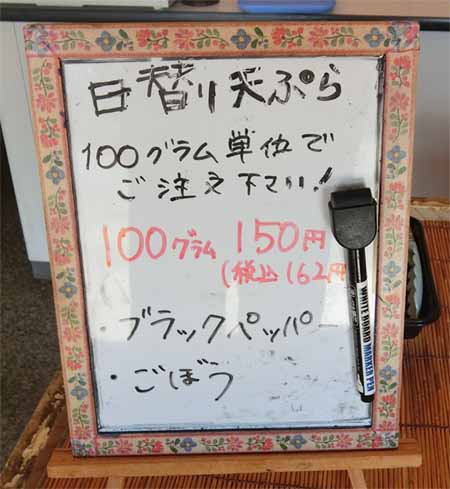 日替り天ぷら
100グラム単位で
ご注文下さい!
100グラム 150円
(税込162円
・ブラックペッパー
・ごぼう
WHITE BOARD MARKER PEN